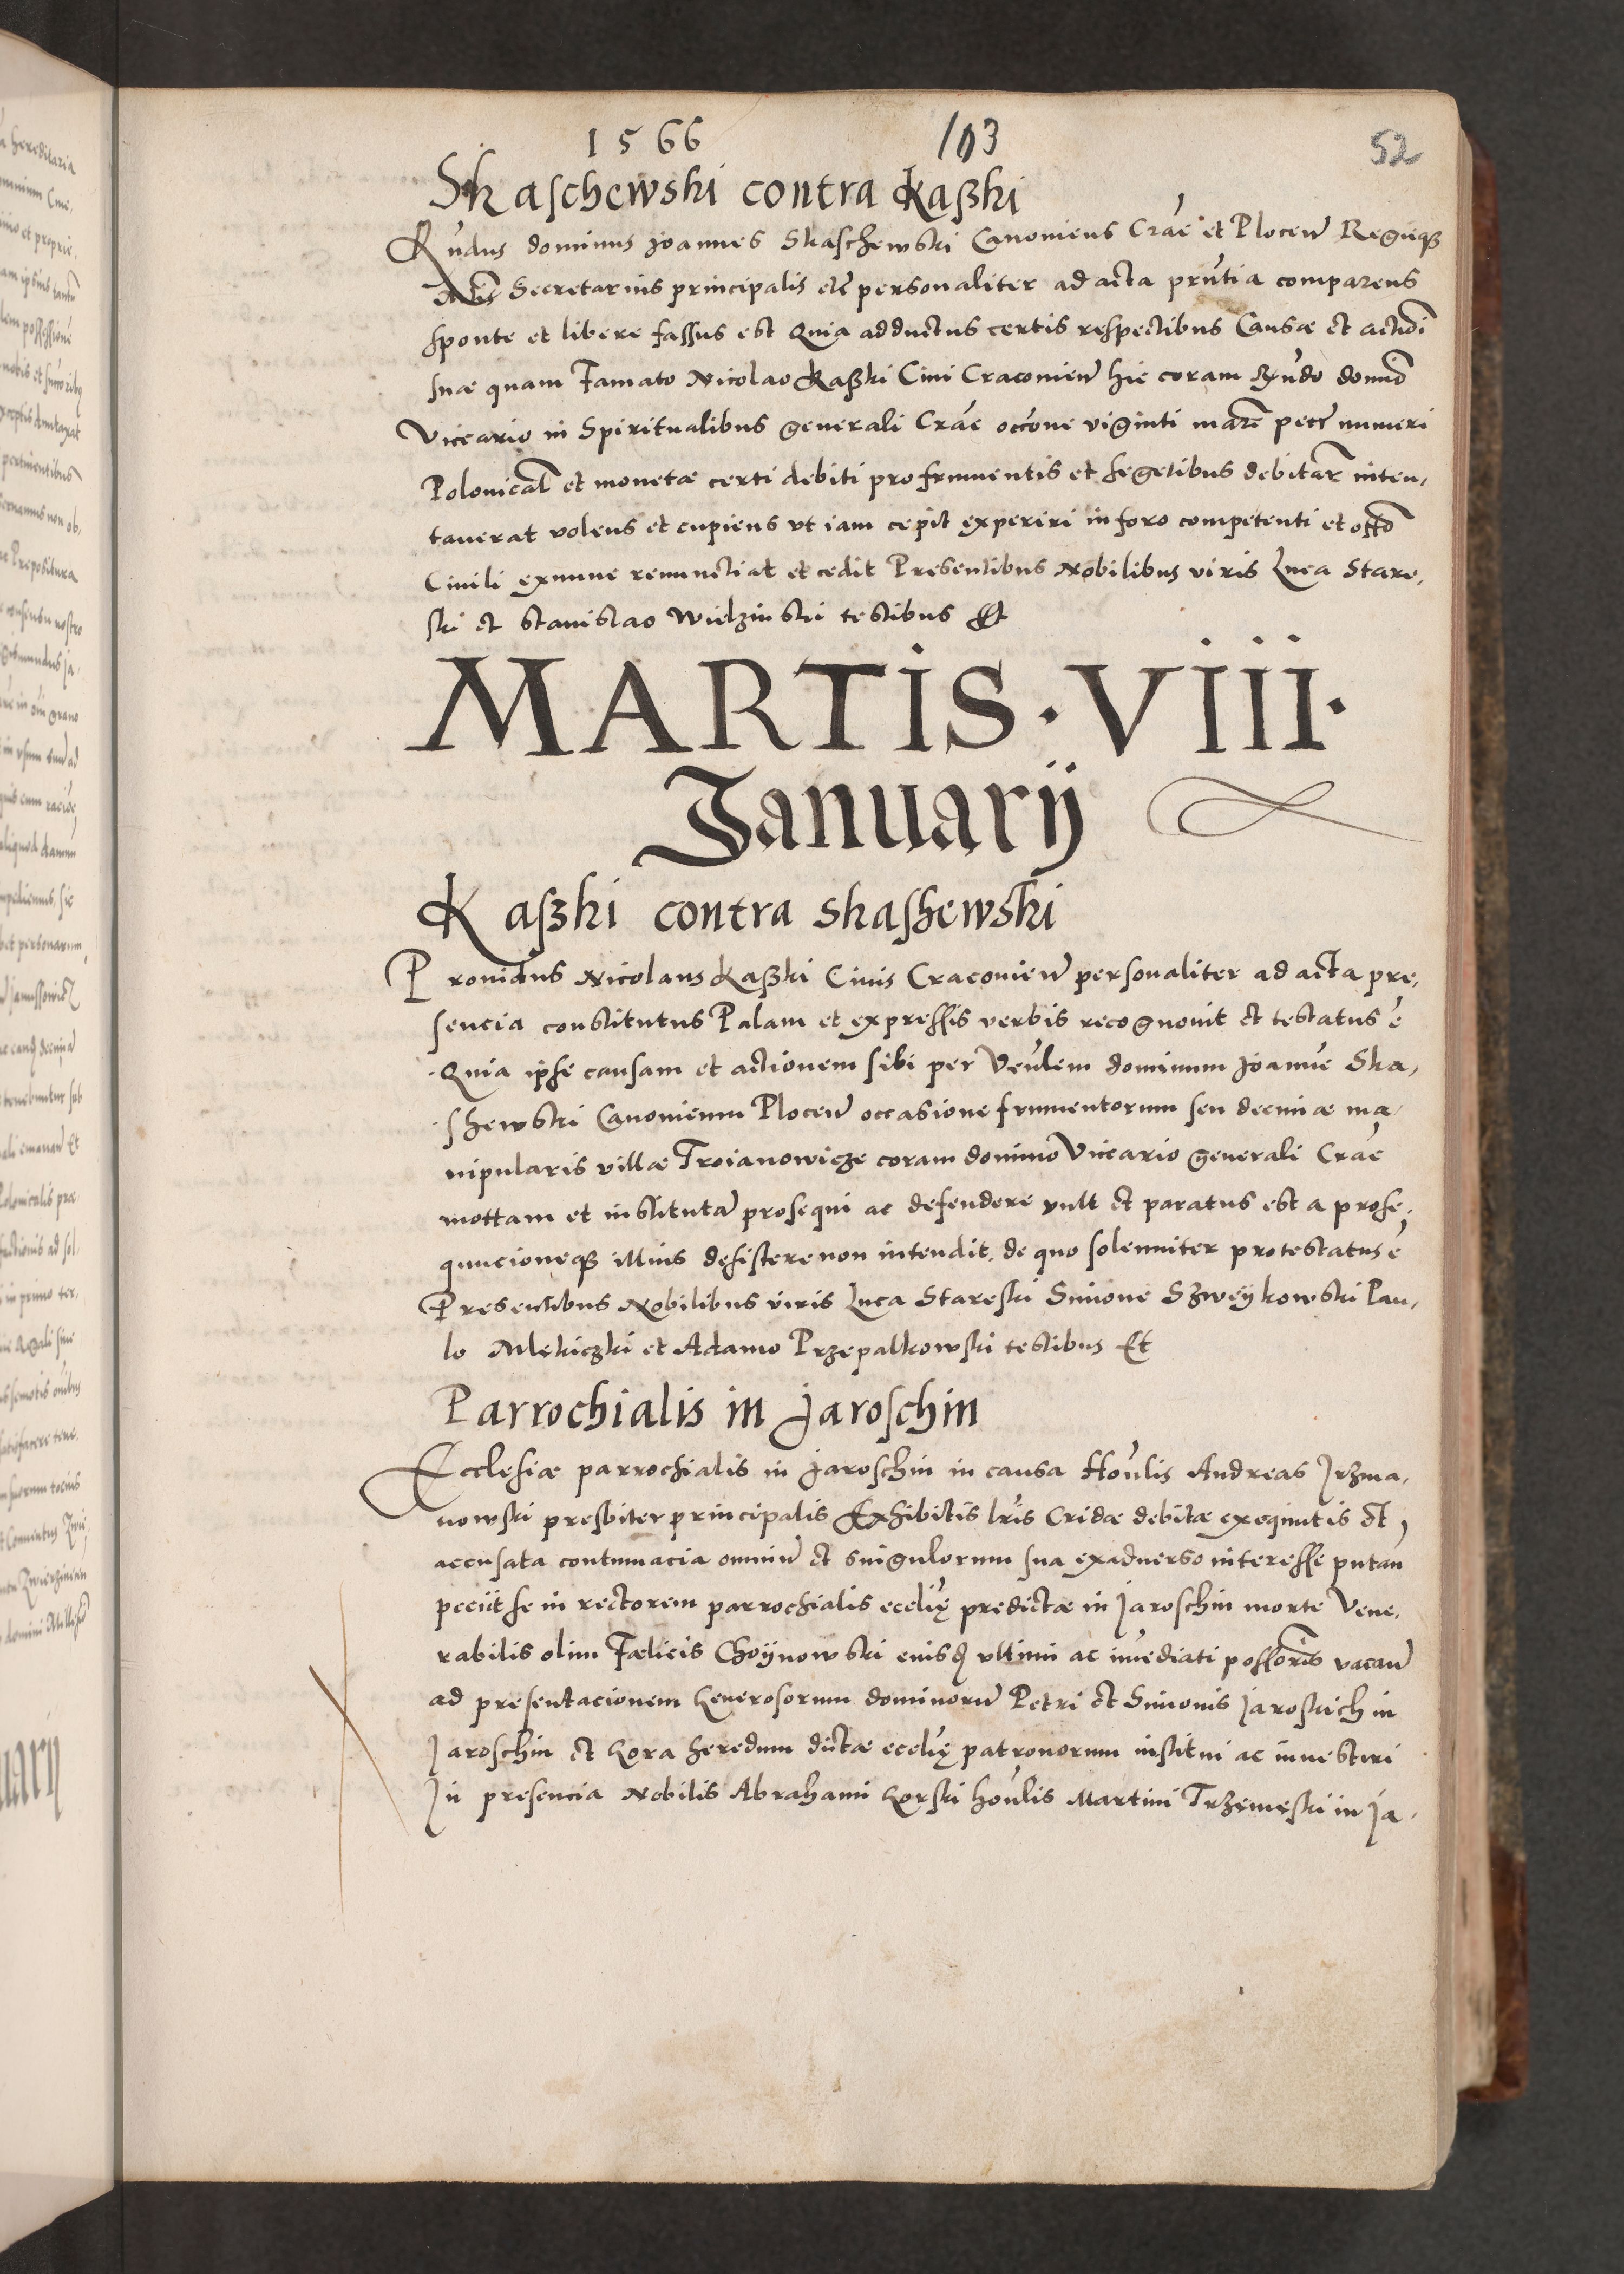 1566 103 52
Skaschewski contra Kaßki
Rndus dominus Joannes Skaschewski Canonicus Crac et Plocen Regieq3
Mtis Secretarius principalis etc personaliter ad acta pruntia comparens
sponte et libere fassus est Quia adductus certis respectibus Causæ et actioni
suæ quam Famato Nicolao Kaßki Civi Cracovien hic coram Rndo domino
Viccario in Spiritualibus generali Crac occone viginti marc pecc numeri
Polonical et monetæ certi debiti pro frumentis et segetibus debitar inten,
taverat volens et cupiens vt iam cepit experiri in foro competenti et offo
Civili exnunc renunctiat et cedit Presentibus Nobilibus viris Luca Stare,
ski et Stanislao Wielzinski testibus Et
MARTIS · VIII ·
Januarij
Kaßki contra Skashewski
Providus Nicolaus Kaßki Civis Cracovien personaliter ad acta pre,
sencia constitutus Palam et expressis verbis recognovit et testatus e
Quia ipse causam et actionem sibi per Venlem dominum Joanne Ska,
shewski Canonicum Plocen occasione frumentorum seu decimæ ma,
nipularis villæ Troianowicze coram domino Viccario generali Crac
mottam et institutam prosequi ac defendere vult et paratus est a prose,
quucioneq3 illius desistere non intendit, de quo solenniter protestatus e
Presentibus Nobilibus viris Luca Stareski Simone Szweykowski Pau,
lo Mlekiczki et Adamo Przepalkowski testibus Et
Parrochialis in Jaroschin
Ecclesiæ parrochialis in Jaroschin in causa Honlis Andreas Jrzma,
nowski presbiter principalis Exhibitis lris Cridæ debitæ exequutis et
accusata contumacia omniu et singulorum sua exadverso interesse putan
peciit se in rectorem parrochialis ecclię predictæ in Jaroschin morte Vene,
rabilis olim Fælicis Choynowski eiusq ultimi ac imediati possoris vacan
ad presentacionem Generosorum dominoru Petri et Simonis Jaroskich in
Jaroschin et Gora heredum dictæ ecclię patronorum institui ac investiri
In presencia Nobilis Abrahami Gorski honlis Martini Trzemeski in Ja,